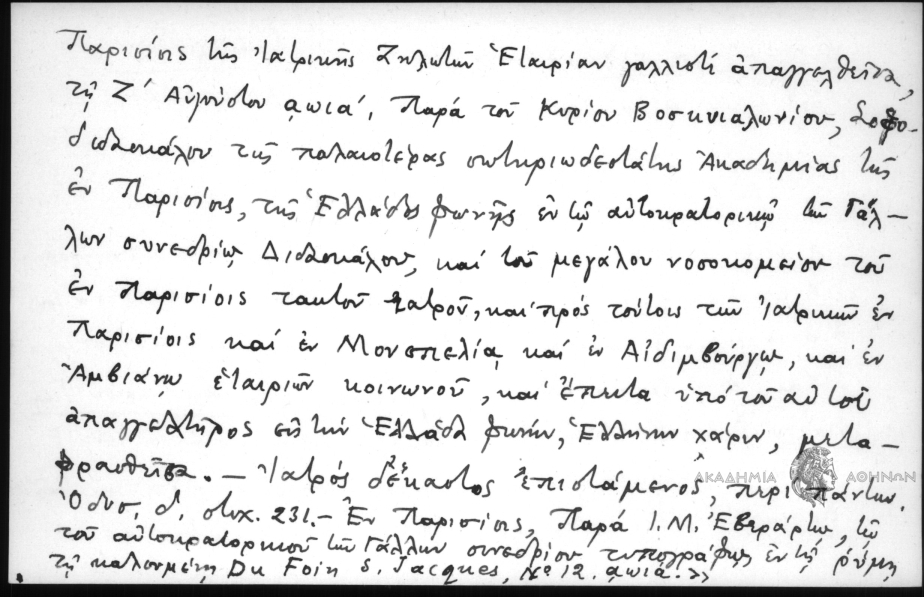 Παρισίοις τῆς Ἰατρικῆς Ζηλωτῶν Ἑταιρίαν γαλλιστὶ ἀπαγγελθεῖσα,
τῇ Ζ' Αὐγούστου αωια', Παρὰ τοῦ Κυρίου Βοσκυιαλωνίου, Σοφο-
διδασκάλου τῆς παλαιοτέρας σωτηριωδεστάτης Ἀκαδημίας τῆς
ἐν Παρισίοις, τῆς Ἑλλάδος φωνῆς ἐν τῷ αὐτοκρατορικῷ τῶν Γάλ-
λων συνεδρίῳ Διδασκάλου, καὶ τοῦ μεγάλου νοσοκομείου τοῦ
ἐν Παρισίοις τακτοῦ ἰατροῦ, καὶ πρὸς τούτοις τῶν Ἰατρικῶν ἐν
Παρισίοις καὶ ἐν Μονσπελίᾳ καὶ ἐν Αἰδιμβούργῳ, καὶ ἐν
Ἀμβιάνῳ ἑταιριῶν κοινωνοῦ, καὶ ἔπειτα ὑπὸ τοῦ αὐτοῦ
ἀπαγγελτῆρος εἰς τὴν Ἑλλάδα φωνήν, Ἑλλήνων χάριν, μετα-
φρασθεῖσα. — Ἰατρὸς δ' ἕκαστος ἐπιστάμενος, περὶ πάντων.
Ὀδυσ. δ. στιχ. 231. – Ἐν Παρισίοις, Παρὰ Ι. Μ. Ἐβεράρτῳ, τῷ
τοῦ αὐτοκρατορικοῦ τῶν Γάλλων συνεδρίου τυπογράφῳ ἐν τῇ ῥύμῃ
τῇ καλουμένῃ Du Foin S. Jacques, No 12. αωιά.»
ΑΚΑΔΗΜΙΑ ΑΘΗΝΩΝ